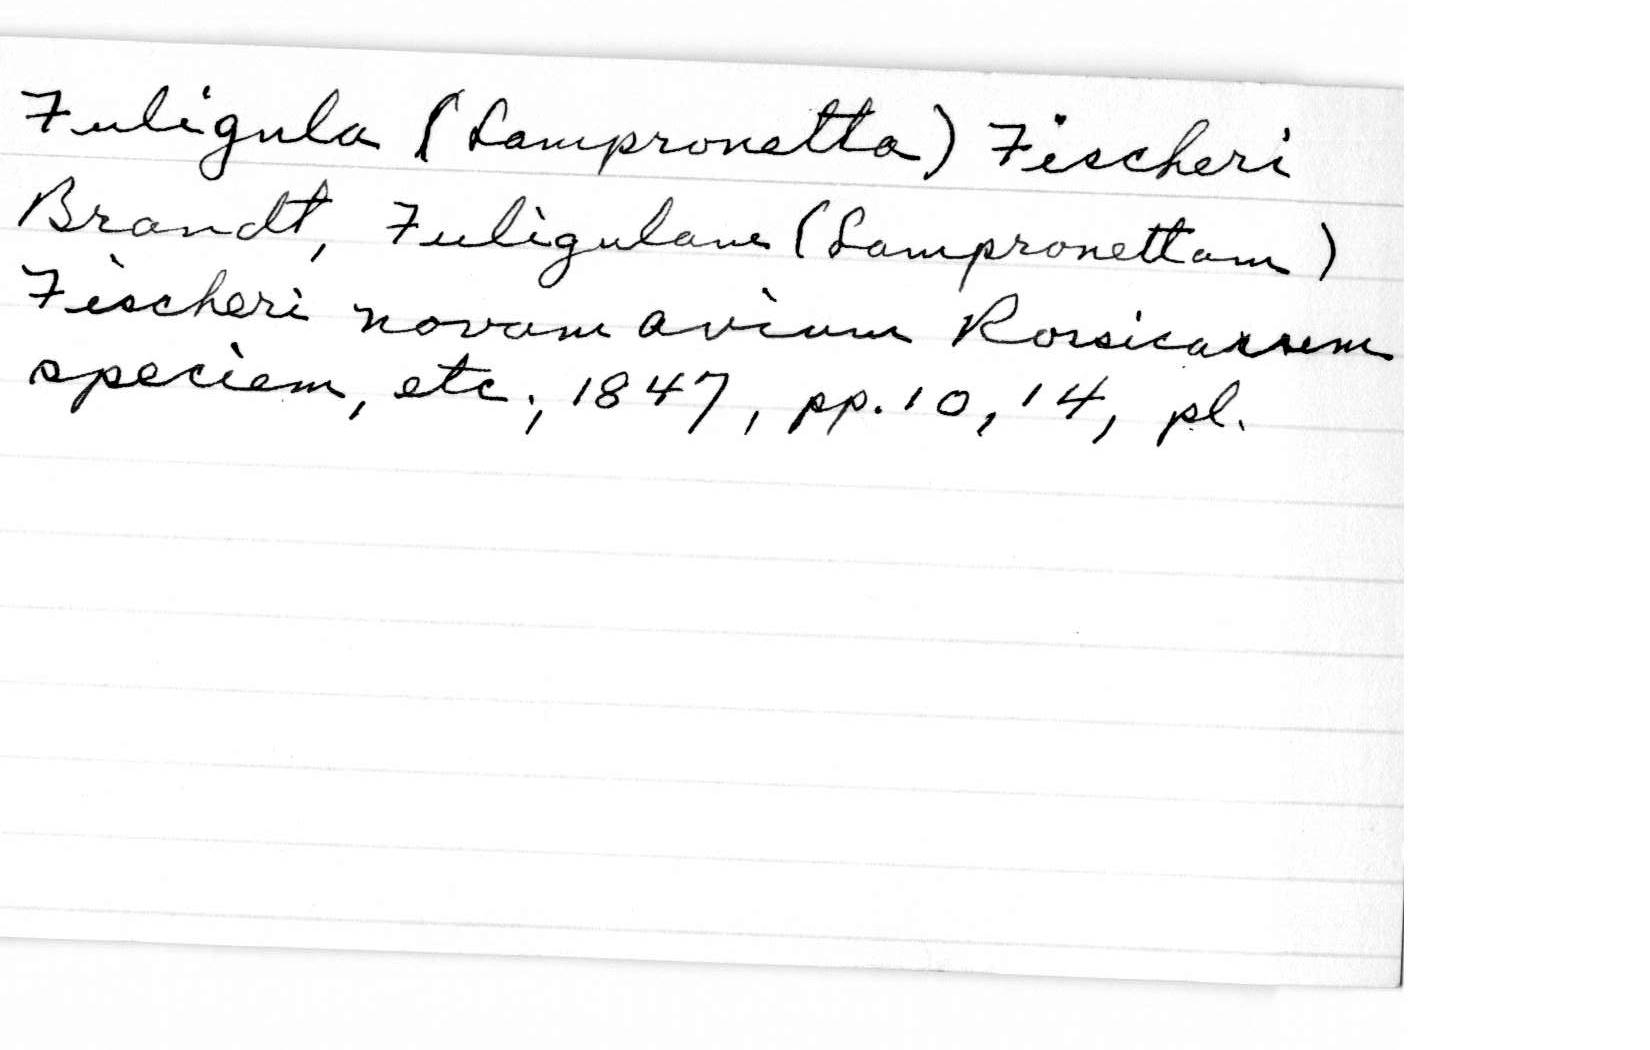 Fuligula (Lampronetta) Fischeri
Brandt, Fuligulam (Lampronettam)
Fischeri novam avium Rossicarum
speciem, etc., 1847, pp. 10, 14, pl.